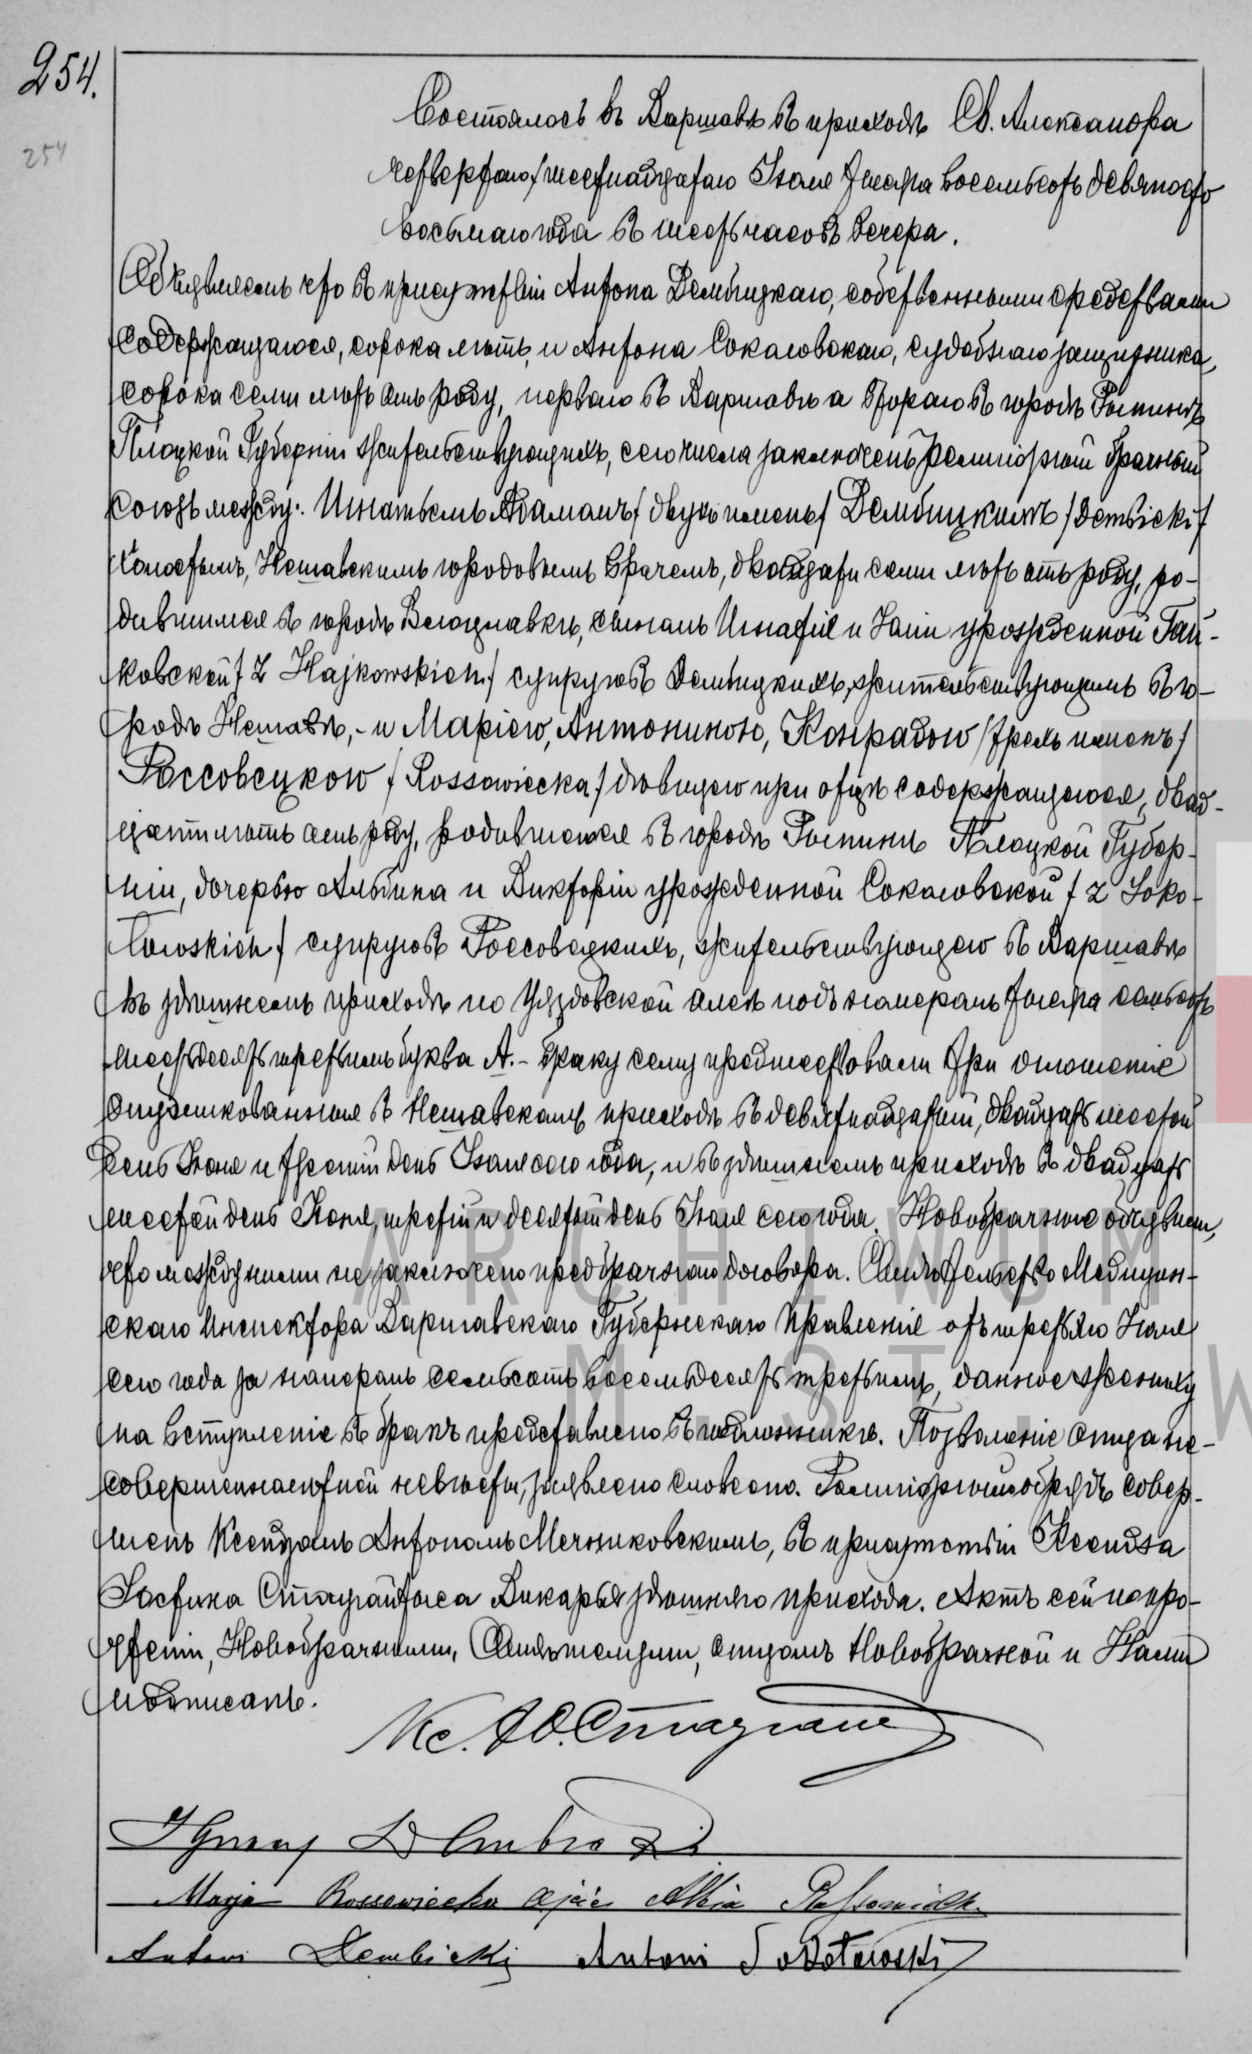 254.
254
Состоялось въ Варшавѣ въ приходѣ Св. Александра
четвертаго/шестнадцатаго Іюля тысяча восемьсотъ девяносто
восьмаго года въ шесть часовъ вечера.
Объявляемъ что въ присутствіи Антона Дембицкаго, собственными средствами
содержащагося, сорока лѣтъ, и Антона Соколовскаго, судебнаго защитника,
сорока семи лѣтъ отъ роду, перваго въ Варшавѣ а втораго въ городѣ Рыпинѣ
Плоцкой Губерніи жительствующихъ, сего числа заключенъ религіозный брачный
союзъ между: Игнатьемъ Адамомъ/двухъ именъ/ Дембицкимъ /Dembicki/
холостымъ, Нешавскимъ городовымъ врачемъ, двадцати семи лѣтъ отъ роду, ро-
дившимся въ городѣ Влоцлавкѣ, сыномъ Игнатія и Яніи урожденной Гай-
ковской/ z Hajkowskich/ супруговъ Дембицкихъ, жительствующимъ въ го-
родѣ Нешавѣ, - и Маріею, Антониною, Конрадою /трехъ именъ/
Россовецкою / Rossowiecka / дѣвицею при отцѣ содержащеюся, двад-
цати лѣтъ отъ роду, родившеюся въ городѣ Рыпинѣ Плоцкой Губер-
ніи, дочерью Альбина и Викторіи урожденной Соколовской / z Soko-
łowskich / супруговъ Россовецкихъ, жительствующею въ Варшавѣ
въ здѣшнемъ приходѣ по Уяздовской алеѣ подъ номеромъ тысяча семьсотъ
шестьдесятъ третьимъ буква А. - Браку сему предшествовали три оглашенія
опубликованныя въ Нешавскомъ приходѣ въ девятнадцатый, двадцать шестой
день Іюня и третій день Іюля сего года, и въ здѣшнемъ приходѣ въ двадцать
шестой день Іюня, третій и десятый день Іюля сего года. Новобрачные объявили,
что между ними не заключено предбрачнаго договора. Свидѣтельство Медицин-
скаго Инспектора Варшавскаго Губернскаго Правленія отъ третьяго Іюля
сего года за номеромъ семьсотъ восемьдесятъ третьимъ, данное жениху
на вступленіе въ бракъ представлено въ подлинникѣ. Позволеніе отца не-
совершеннолѣтней невѣсты, заявлено словесно. Религіозный обрядъ совер-
шенъ Ксендзомъ Антономъ Мечниковскимъ, въ присутствіи Ксендза
Юстина Викарія здѣшняго прихода. Актъ сей по про-
чтеніи, Новобрачными, Свидѣтелями, отцомъ Новобрачной и Нами
подписанъ.
Кс.
Ignacy Dembicki
Marja Rossowiecka ojciec Albin Rossowiecki
Antoni Dembicki Antoni Sokołowski
ARCHIWUM
M. ST. W